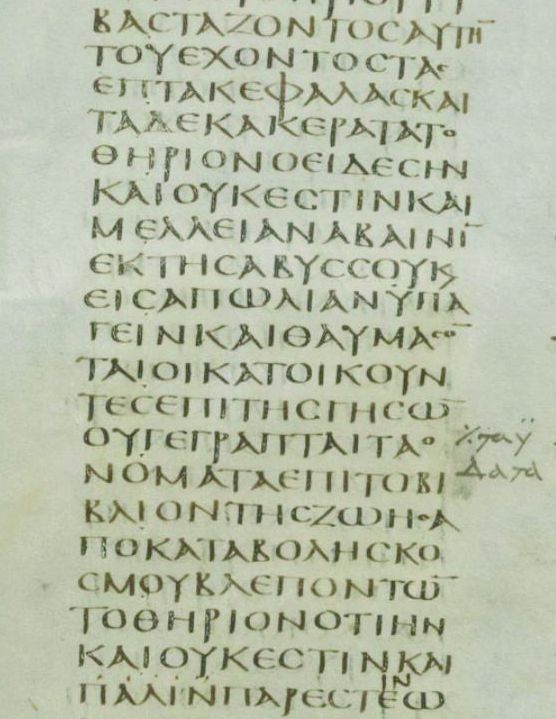 ΒΑCΤΑΖΟΝΤΟCΑΥΤΗ̅
ΤΟΥΕΧΟΝΤΟCΤΑC
ΕΠΤΑΚΕΦΑΛΑCΚΑΙ
ΤΑΔΕΚΑΚΕΡΑΤΑΤΟ
ΘΗΡΙΟΝΟΕΙΔΕCΗΝ
ΚΑΙΟΥΚΕCΤΙΝΚΑΙ
ΜΕΛΛΕΙΑΝΑΒΑΙΝΙ̅
ΕΚΤΗCΑΒΥCCΟΥΚϚ
ΕΙCΑΠΩΛΙΑΝΫΠΑ
ΓΕΙΝΚΑΙΘΑΥΜΑCΟ̅
ΤΑΙΟΙΚΑΤΟΙΚΟΥΝ
ΤΕCΕΠΙΤΗCΓΗCΩ̅
ΟΥΓΕΓΡΑΠΤΑΙΤΑΟ
ΝΟΜΑΤΑΕΠΙΤΟΒΙ
ΒΛΙΟΝΤΗCΖΩΗCΑ
ΠΟΚΑΤΑΒΟΛΗCΚΟ
CΜΟΥΒΛΕΠΟΝΤΩ̅
ΤΟΘΗΡΙΟΝΟΤΙΗΝ
ΚΑΙΟΥΚΕCΤΙΝΚΑΙ
ΠΑΛΙΝΠΑΡΕCΤΕΩ